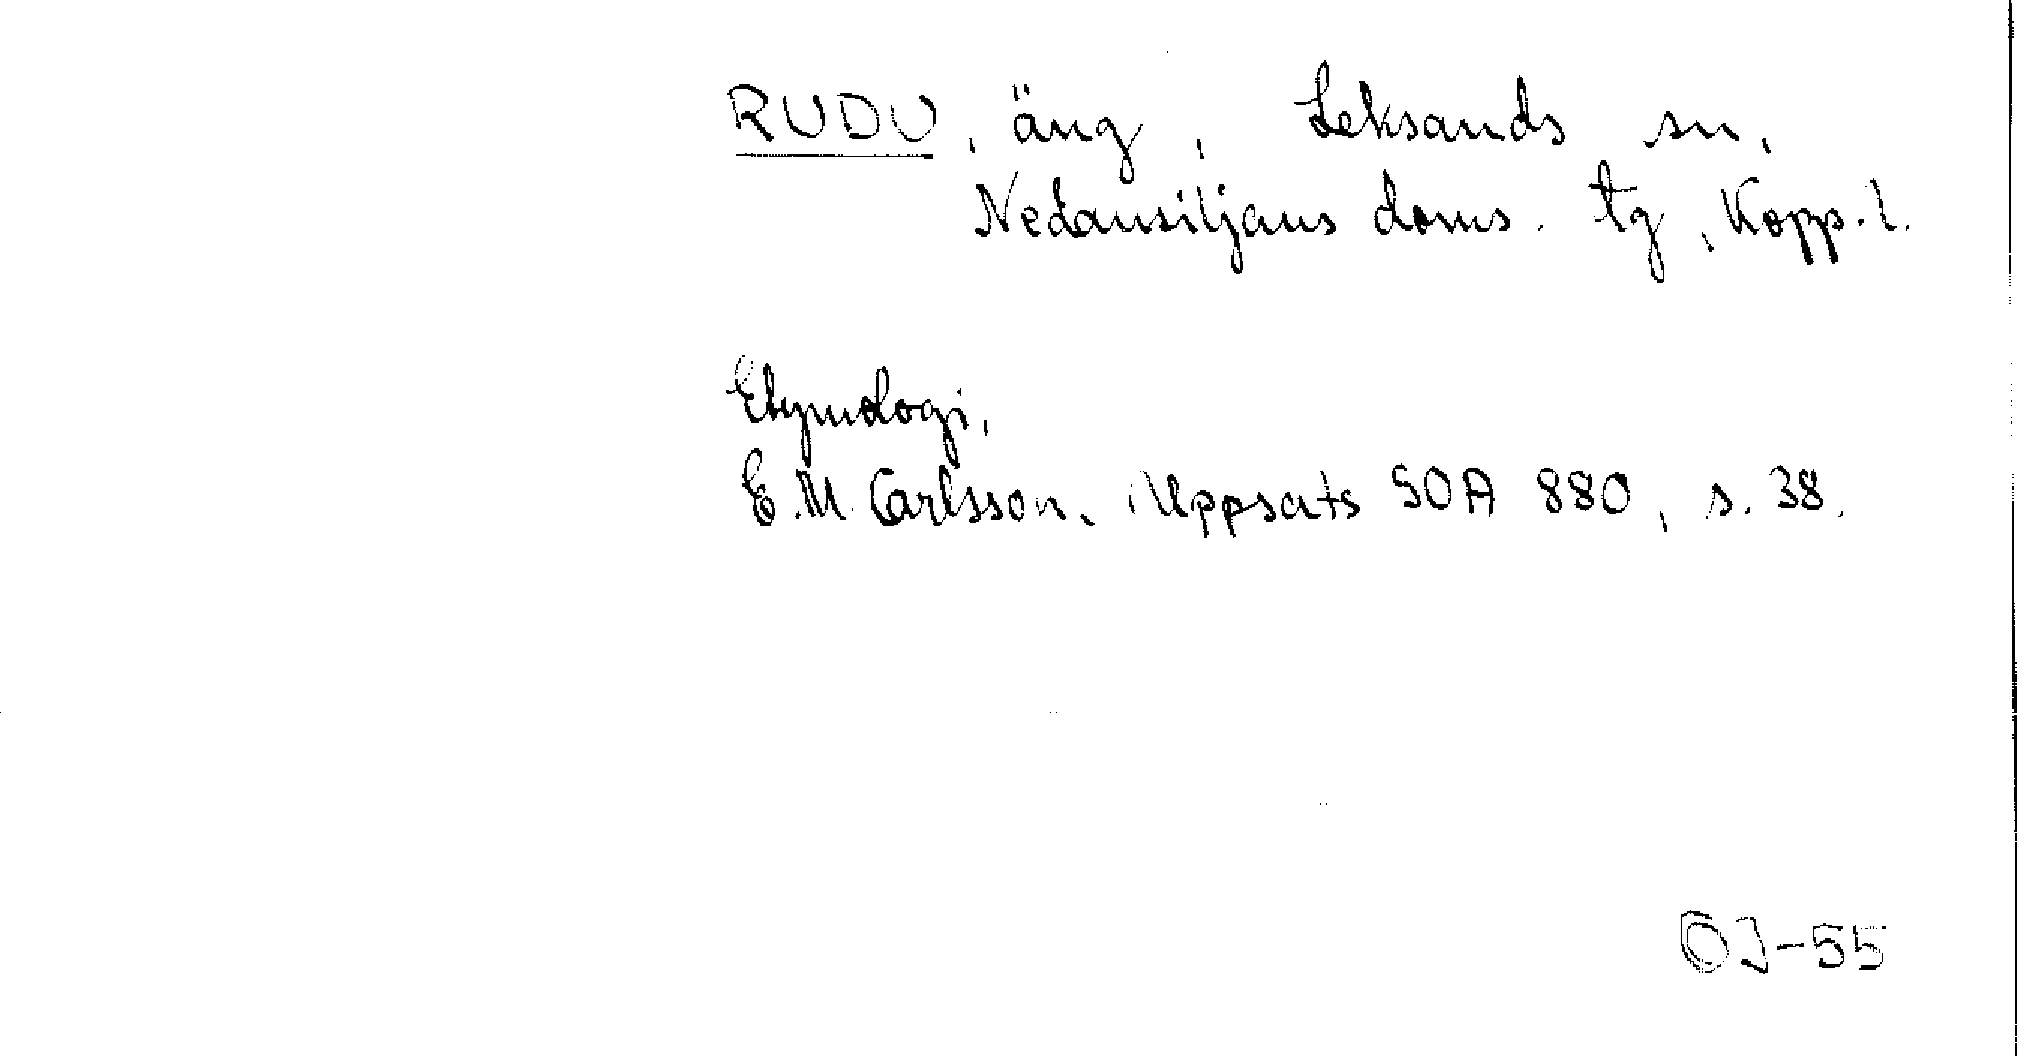 RUDU, äng, Leksands sn,
Nedansiljans doms. tg, Kopp. l.
Etymologi,
E.M. Carlsson, Uppsats SOA 880, s. 38.
-55